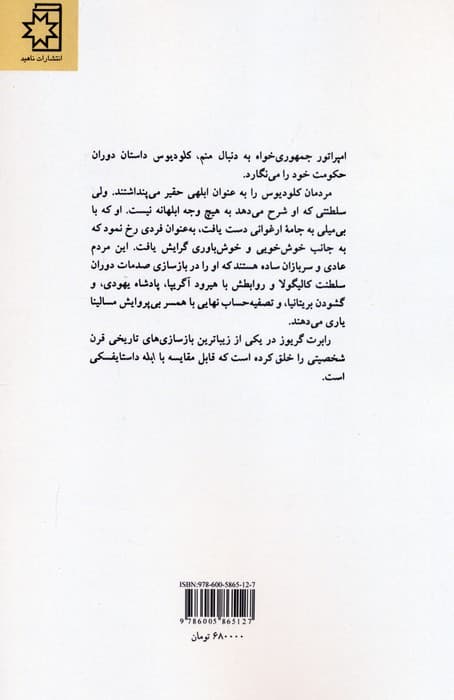 انتشارات ناهید
امپراتور جمهوری‌خواه به دنبال منم، کلودیوس داستان دوران
حکومت خود را می‌نگارد.
مردمان کلودیوس را به عنوان ابلهی حقیر می‌پنداشتند. ولی
سلطنتی که او شرح می‌دهد به هیچ وجه ابلهانه نیست. او که با
بی‌میلی به جامهٔ ارغوانی دست یافت، به‌عنوان فردی رخ نمود که
به جانب خوش‌خویی و خوش‌باوری گرایش یافت. این مردم
عادی و سربازان ساده هستند که او را در بازسازی صدمات دوران
سلطنت کالیگولا و روابطش با هیرود آگریپا، پادشاه یهودی، و
گشودن بریتانیا، و تصفیه‌حساب نهایی با همسر بی‌پروایش مسالینا
یاری می‌دهند.
رابرت گریوز در یکی از زیباترین بازسازی‌های تاریخی قرن
شخصیتی را خلق کرده است که قابل مقایسه با ابله داستایفسکی
است.
ISBN:978-600-5865-12-7
9 786005 865127
۶۸۰۰۰۰ تومان